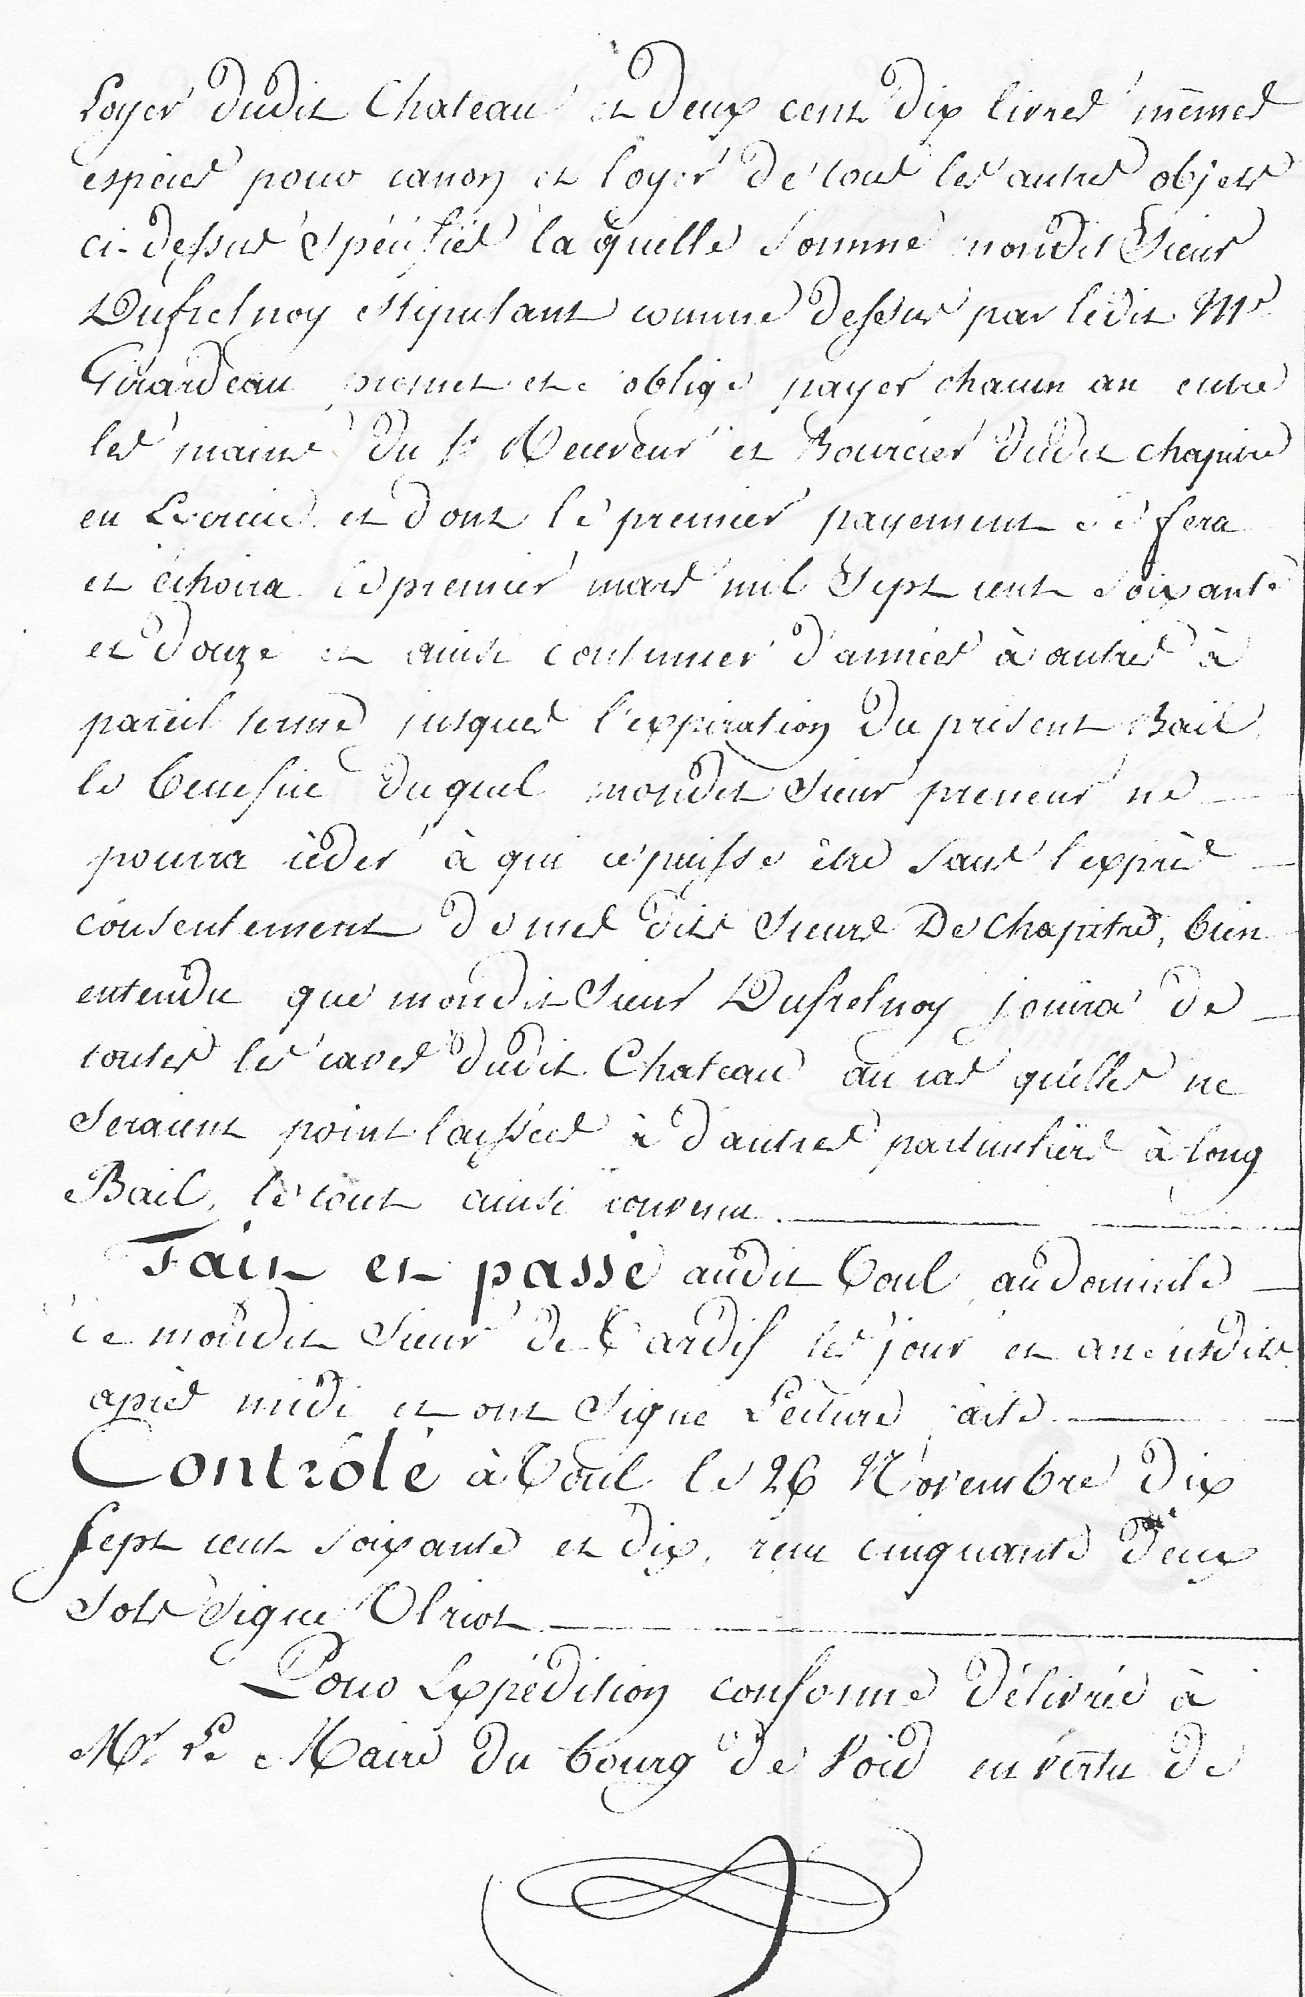 Loyer dudit Chateau et deux cent dix livres mêmes
espèces pour canon et loyer de tous les autres objets
ci-dessus spécifiés laquelle somme mondit Sieur
Dufresnoy stipulant comme dessus par ledit Mr
Girardeau promet et s'oblige payer chacun an entre
les mains du Sr Receveur et Boursier dudit chapitre
en Lorraine et dont le premier payement se fera
et échoira le premier mars mil sept cent soixante
et douze et ainsi continuer d'années à autres à
pareil terme jusques l'expiration du présent Bail
le benefice duquel mondit Sieur preneur ne
pourra céder à qui ce puisse être sans l'exprès
consentement de mes dits Sieurs De Chapitre, bien
entendu que mondit Sieur Dufresnoy jouira de
toutes les caves dudit Chateau au cas qu'elles ne
seraient point laissées à d'autres particuliers à long
Bail, le tout ainsi convenu.
Fait et passé audit Toul, au domicile
de mondit Sieur de Tardif les jour et an susdits
après midi et ont signé Lecture faite.
Contrôlé à Toul le 26 Novembre dix
sept cent soixante et dix, reçu cinquante deux
sols signé Olriot
Pour Expédition conforme délivrée à
Mr. Le Maire du bourg de Void en vertu de